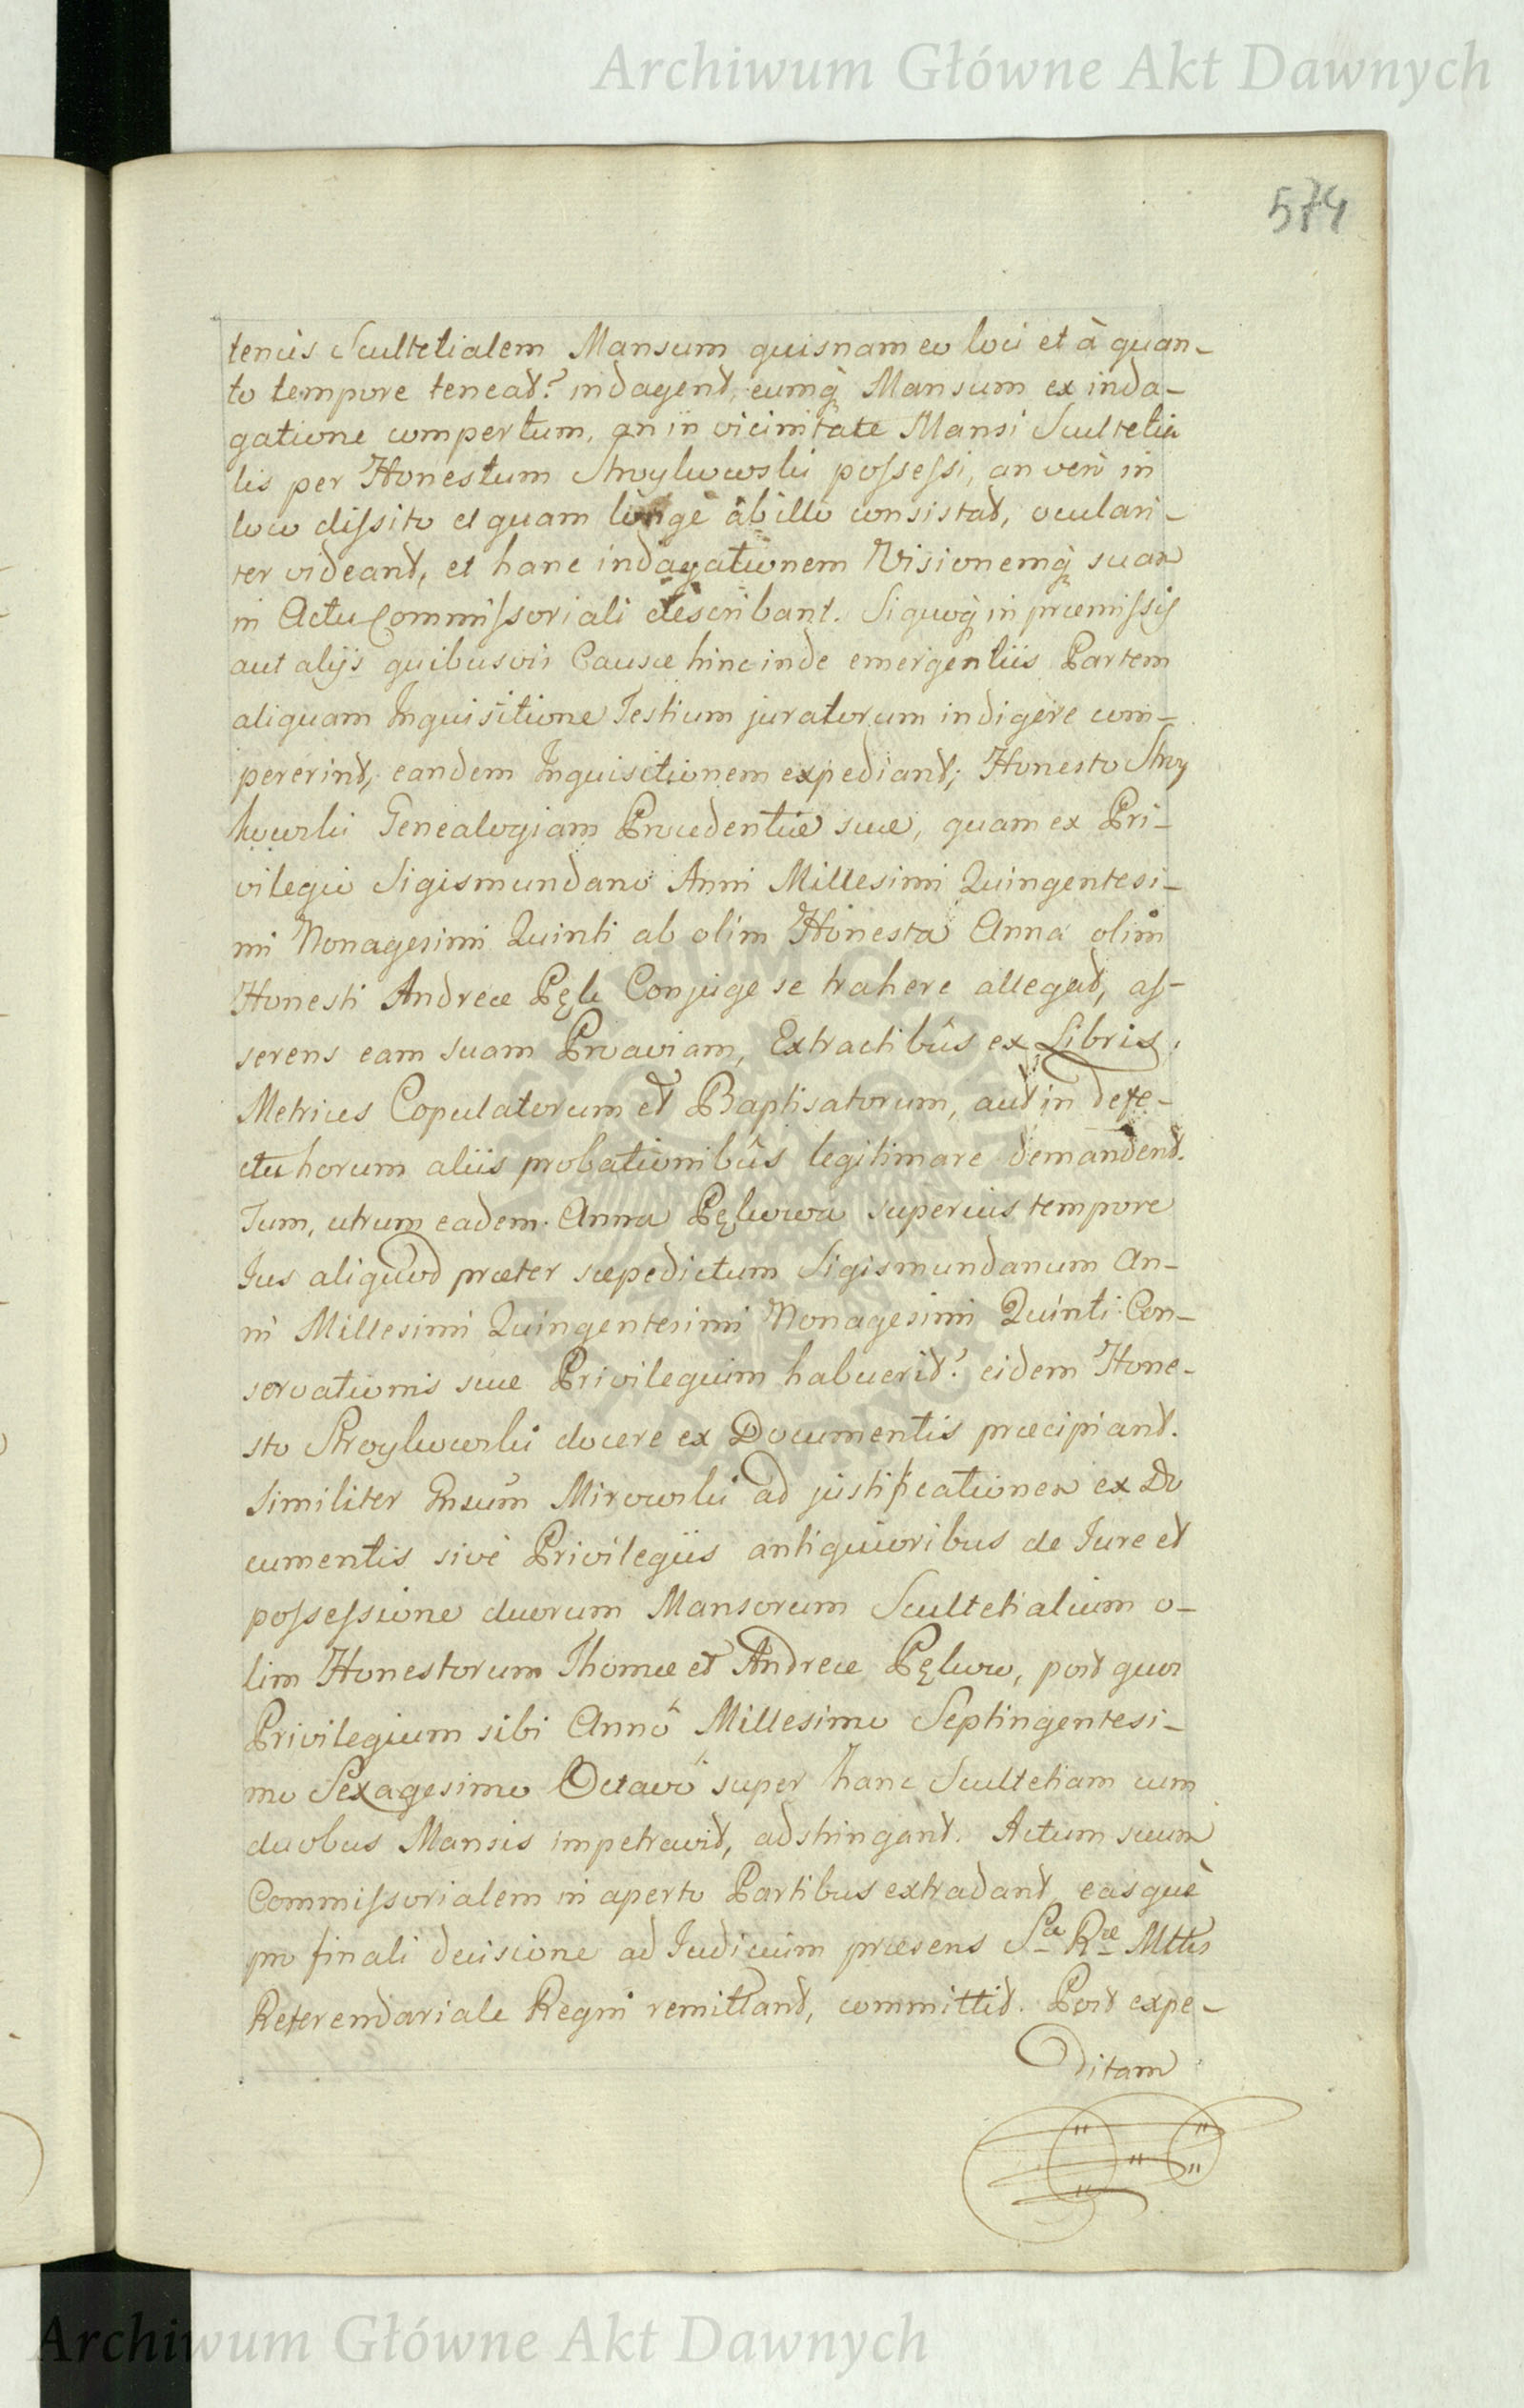 Archiwum Główne Akt Dawnych
574
tenus Scultetialem Mansum quisnam eo loci et à quan-
to tempore teneat? indagent, eumq̀ Mansum ex inda-
gatione compertum, an in vicinitate Mansi Scultetia
lis per Honestum Stroykowski possessi, an verò in
loco dissito et quam longè ab illo consistat, oculari-
ter videant, et hanc indagationem Visionemq̀ suam
in Actu Commissoriali describant. Siquoq̀ in præmissis
aut alijs quibusvis Causæ hinc inde emergentiis Partem
aliquam Inquisitione Testium juratorum indigere com-
pererint, eandem Inquisitionem expediant; Honesto Stroy
kowski Genealogiam Procedentiæ suæ, quam ex Pri-
vilegio Sigismundano Anni Millesimi Quingentesi-
mi Nonagesimi Quinti ab olim Honesta Anna olim
Honesti Andreæ Pęk Conjuge se trahere allegat, as-
serens eam suam Proaviam, Extractibûs ex Libris
Metrices Copulatorum et Baptisatorum, aut in defe-
ctu horum aliis probationibûs legitimare demandent.
Tum, utrum eadem Anna Pękowa superius tempore
Jus aliquod præter sæpedictum Sigismundanum An-
ni Millesimi Quingentesimi Nonagesimi Quinti Con-
servationis suæ Privilegium habuerit? eidem Hone-
sto Stroykowski docere ex Documentis præcipiant.
Similiter Gnsum Mirowski ad justificationem ex Do
cumentis sivè Privilegiis antiquioribus de Jure et
possessione duorum Mansorum Scultetialium o-
lim Honestorum Thomæ et Andreæ Pękow, post quos
Privilegium sibi Annô Millesimo Septingentesi-
mo Sexagesimo Octavô super hanc Scultetiam cum
duobus Mansis impetravit, adstringant. Actum suum
Commissorialem in aperto Partibus extradant, easquè
pro finali decisione ad Judicium præsens Sæ Ræ Mttis
Referendariale Regni remittant, committit. Post expe-
ditam
Archiwum Główne Akt Dawnych